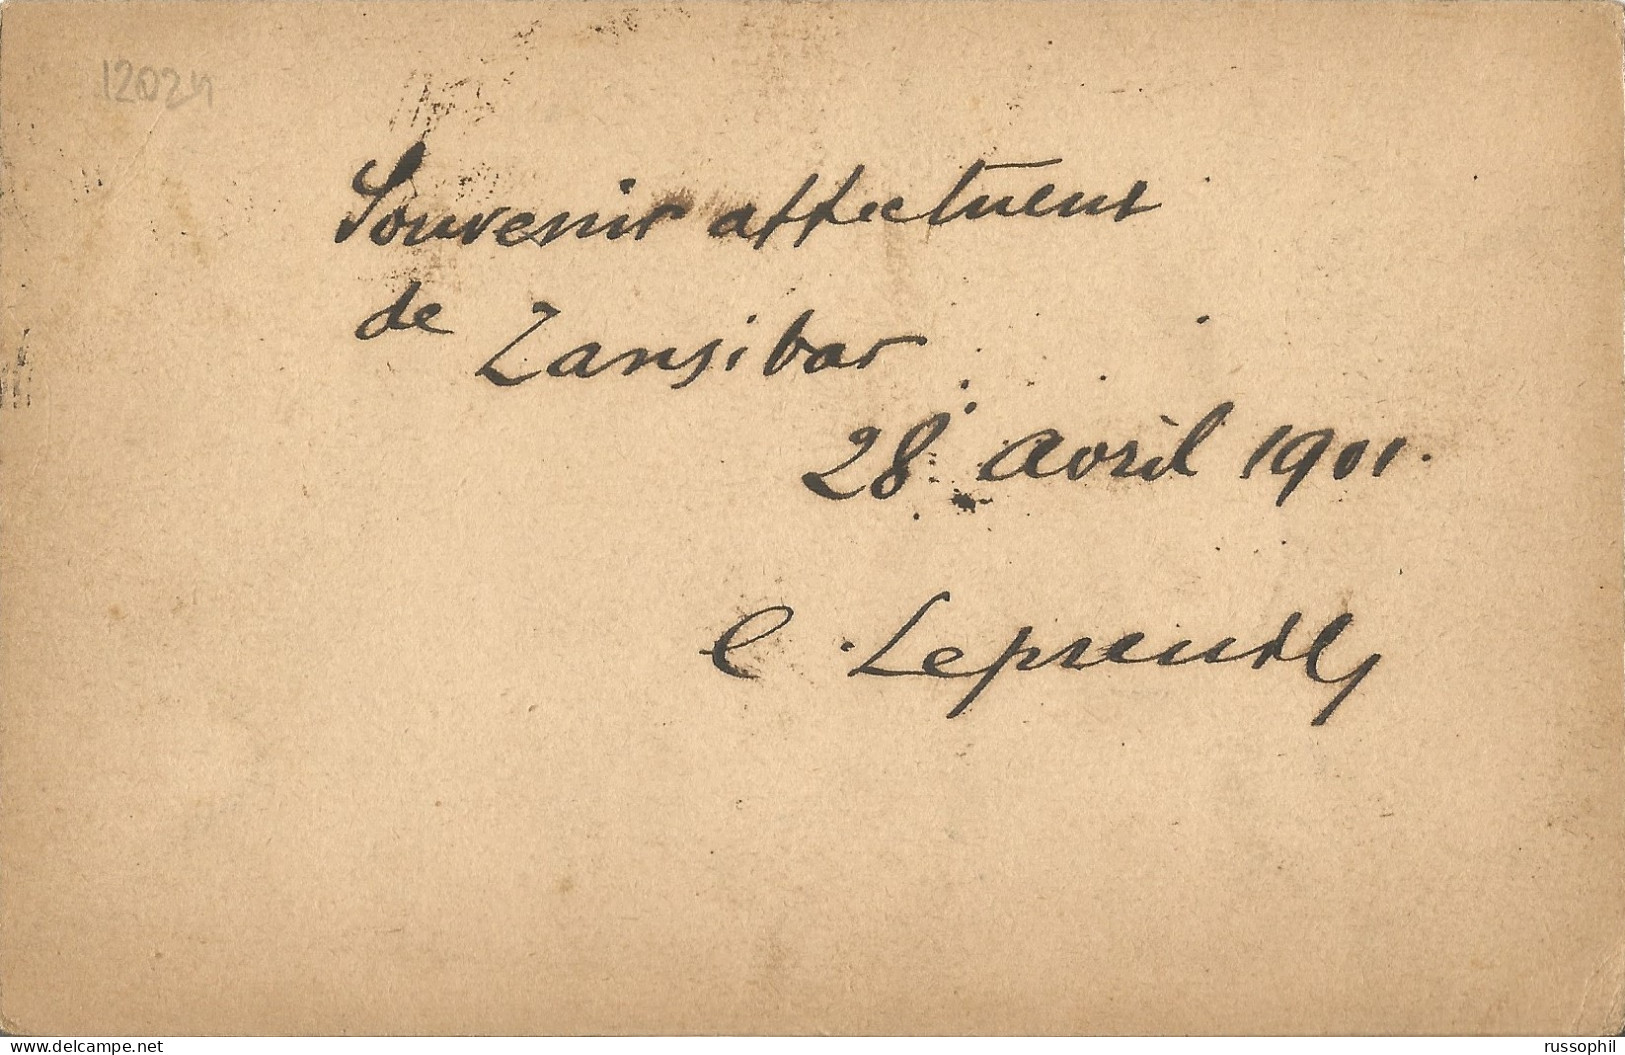 12024
Souvenir affectueux
de Zansibar
28 avril 1901.
C.
www.delcampe.net
russophil